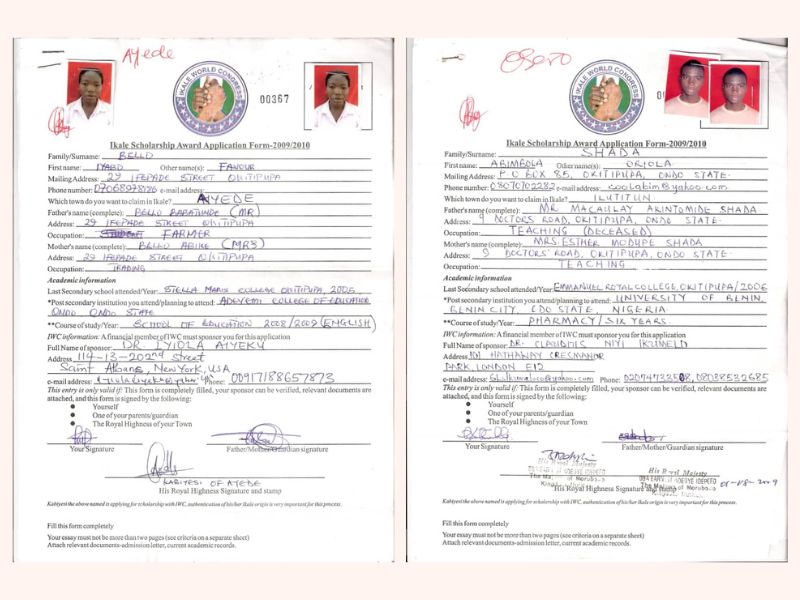 Ayede
IKALE WORLD CONGRESS
00367
Ikale Scholarship Award Application Form-2009/2010
Family/Surname: BELLO
First name: IYABO Other name(s): FAVOUR
Mailing Address: 29 IFEPADE STREET OKITIPUPA
Phone number: 07068978126 e-mail address:
Which town do you want to claim in Ikale? AYEDE
Father's name (complete): BELLO BABATUNDE (MR)
Address: 29 IFEPADE STREET OKITIPUPA
Occupation: FARMER
Mother's name (complete): BELLO ABIKE (MRS)
Address: 29 IFEPADE STREET OKITIPUPA
Occupation: TRADING
Academic information
Last Secondary school attended/Year: STELLA MARIS COLLEGE OKITIPUPA, 2006
*Post secondary institution you attend/planning to attend: ADEYEMI COLLEGE OF EDUCATION
ONDO ONDO STATE
**Course of study/Year: SCHOOL OF EDUCATION 2008/2009 (ENGLISH)
IWC information: A financial member of IWC must sponsor you for this application
Full Name of sponsor: DR IYIOLA AIYEKU
Address 114-13-202nd Street
Saint Albans, New York, USA
e-mail address: Phone: 00917188657873
This entry is only valid if: This form is completely filled, your sponsor can be verified, relevant documents are
attached, and this form is signed by the following:
● Yourself
● One of your parents/guardian
● The Royal Highness of your Town
Your Signature Father/Mother/Guardian signature
KABIYESI OF AYEDE
His Royal Highness Signature and stamp
Kabiyesi the above named is applying for scholarship with IWC, authentication of his/her Ikale origin is very important for this process.
Fill this form completely
Your essay must not be more than two pages (see criteria on a separate sheet)
Attach relevant documents-admission letter, current academic records.
Osoro
IKALE WORLD CONGRESS
Ikale Scholarship Award Application Form-2009/2010
Family/Surname: SHADA
First name: ABIMBOLA Other name(s): ORIOLA
Mailing Address: P O BOX 85, OKITIPUPA, ONDO STATE
Phone number: 08070702282 e-mail address: coolabim@yahoo.com
Which town do you want to claim in Ikale? ILUTITUN
Father's name (complete): MR MACAULAY AKINTOMIDE SHADA
Address: 9 DOCTORS ROAD, OKITIPUPA, ONDO STATE
Occupation: TEACHING (DECEASED)
Mother's name (complete): MRS. ESTHER MODUPE SHADA
Address: 9 DOCTORS' ROAD, OKITIPUPA, ONDO STATE
Occupation: TEACHING
Academic information
Last Secondary school attended/Year: EMMANUEL ROYAL COLLEGE, OKITIPUPA/2006
*Post secondary institution you attend/planning to attend: UNIVERSITY OF BENIN,
BENIN CITY, EDO STATE, NIGERIA
**Course of study/Year: PHARMACY/SIX YEARS
IWC information: A financial member of IWC must sponsor you for this application
Full Name of sponsor: DR. CLAUDIUS NIYI IKUMELO
Address 101 HATHAWAY CRESMANOR
PARK, LONDON E12
e-mail address: Phone: 02074733508, 08088532685
This entry is only valid if: This form is completely filled, your sponsor can be verified, relevant documents are
attached, and this form is signed by the following:
● Yourself
● One of your parents/guardian
● The Royal Highness of your Town
Your Signature Father/Mother/Guardian signature
His Royal Majesty
His Royal Majesty
01-08-2009
His Royal Highness Signature and stamp
Kabiyesi the above named is applying for scholarship with IWC, authentication of his/her Ikale origin is very important for this process.
Fill this form completely
Your essay must not be more than two pages (see criteria on a separate sheet)
Attach relevant documents-admission letter, current academic records.